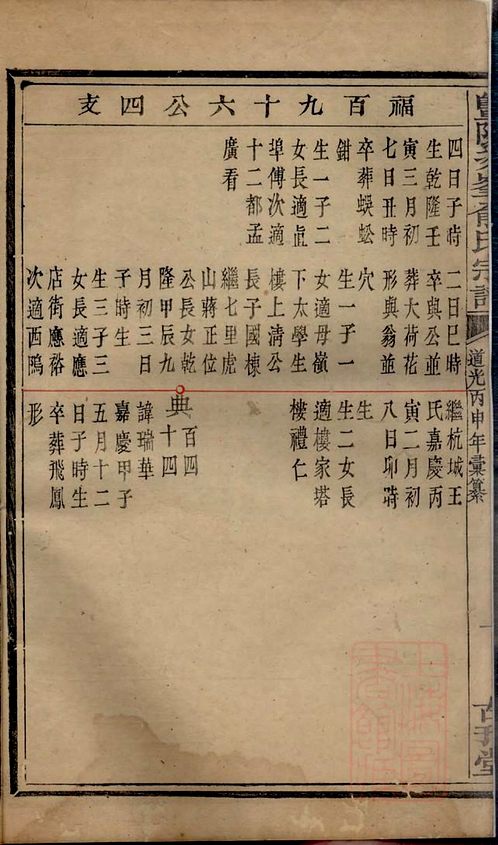 福百九十六公四支
四日子時
生乾隆壬
寅三月初
七日丑時
卒葬蜈蚣
鉗
生一子二
女長適直
埠傅次適
十二都孟
廣看
二日巳時
卒與公並
葬大荷花
形與翁並
穴
生一子一
女適母嶺
下太學生
樓上清公
長子國棟
繼七里虎
山蔣正位
公長女乾
隆甲辰九
月初三日
子時生
生三子三
女長適應
店街應裕
次適西隖
繼杭城王
氏嘉慶丙
寅二月初
八日卯時
生
生二女長
適樓家塔
樓禮仁
典百四
十四
諱瑞華
嘉慶甲子
五月十二
日子時生
卒葬飛鳳
形
道光丙申年彙纂